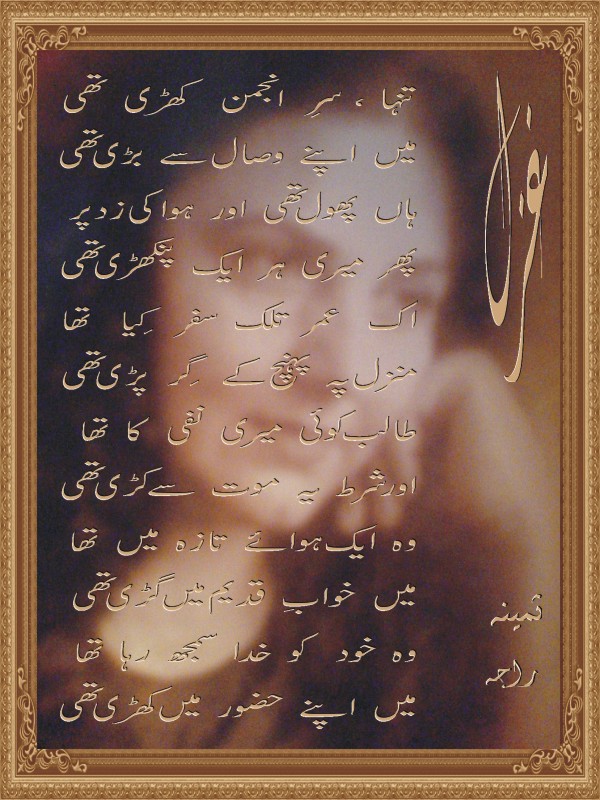 غزل
تنہا ، سرِ انجمن کھڑی تھی
میں اپنے وصال سے بڑی تھی
ہاں پھول تھی اور ہوا کی زد پر
پھر میری ہر ایک پنکھڑی تھی
اک عمر تلک سفر کِیا تھا
منزل پہ پہنچ کے گِر پڑی تھی
طالب کوئی میری نفی کا تھا
اور شرط یہ موت سے کڑی تھی
وہ ایک ہوائے تازہ میں تھا
میں خوابِ قدیم میں گڑی تھی
وہ خود کو خدا سمجھ رہا تھا
میں اپنے حضور میں کھڑی تھی
ثمینہ
راجہ